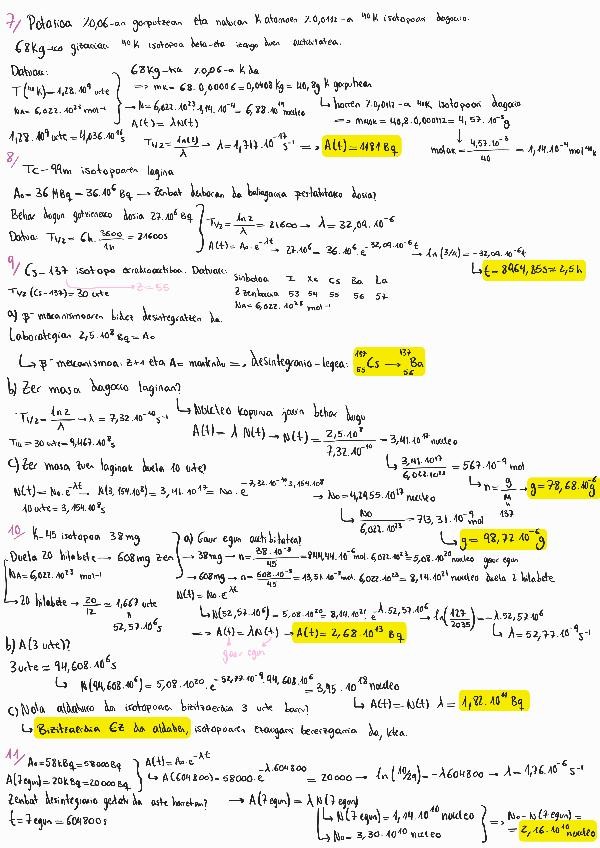 7/ Potasioa %0,06-an gorputzean eta naturan K atomoen %0,0112-a ⁴⁰K isotopoan dagoio.
68Kg-ko gizakiak ⁴⁰K isotopoa dela-eta izango duen aktibitatea.
Datuak:
T(⁴⁰K) = 1,28·10⁹ urte
NA = 6,022·10²³ mol⁻¹
1,28·10⁹ urte = 4,036·10¹⁶ s
68Kg-tik %0,06-a K da
=> mK = 68·0,0006 = 0,0408 Kg = 40,8g K gorputzean
↳ horren %0,0112-a 40K isotopoari dagoio
→ m40K = 40,8·0,000112 = 4,57·10⁻³g
molak = 4,57·10⁻³/40 = 1,14·10⁻⁴ mol ⁴⁰K
→ N = 6,022·10²³·1,14·10⁻⁴ = 6,88·10¹⁹ nucleo
A(t) = λN(t)
T1/2 = ln(2)/λ → λ = 1,717·10⁻¹⁷ s⁻¹ => A(t) = 1181 Bq
8/ Tc-99m isotopoaren lagina
A₀ = 36 MBq = 36·10⁶ Bq → Zenbat denboran da baliagarria prestatutako dosia?
Behar dugun gutxieneko dosia 27·10⁶ Bq
Datua: T1/2 = 6h · 3600/1h = 21600s
T1/2 = ln2/λ = 21600 → λ = 32,09·10⁻⁶
A(t) = A₀·e^-λt → 27·10⁶ = 36·10⁶·e^-32,09·10⁻⁶t → ln(3/4) = -32,09·10⁻⁶t
↳ t = 8964,85s = 2,5h
9/ Cs-137 isotopo erradioaktiboa. Datuak:
→ Z=55
T1/2 (Cs-137) = 30 urte
Sinboloa I Xe Cs Ba La
Z zenbakia 53 54 55 56 57
NA = 6,022·10²³ mol⁻¹
a) β⁻ mekanismoaren bidez desintegratzen da.
Laborategian 2,5·10⁸ Bq = A₀
↳ β⁻ mekanismoa: Z+1 eta A= mantendu => Desintegrazio-legea: ¹³⁷₅₅Cs → ¹³⁷₅₆Ba
b) Zer masa dagoio laginan?
T1/2 = ln2/λ → λ = 7,32·10⁻¹⁰ s⁻¹
T1/2 = 30 urte = 9,467·10⁸s
↳ Nukleo kopurua jakin behar dugu
A(t) = λ N(t) → N(t) = 2,5·10⁸/7,32·10⁻¹⁰ = 3,41·10¹⁷ nucleo
↳ 3,41·10¹⁷/6,022·10²³ = 567·10⁻⁹ mol
↳ n = g/M → g = 78,68·10⁻⁶g
137
c) Zer masa zuen laginak duela 10 urte?
N(t) = N₀·e^-λt → N(3,154·10⁸) = 3,41·10¹⁷ = N₀·e^-7,32·10⁻¹⁰·3,154·10⁸
10 urte = 3,154·10⁸s
→ N₀ = 4,2955·10¹⁷ nucleo
↳ N₀/6,022·10²³ = 713,31·10⁻⁹ mol
↳ g = 98,72·10⁻⁶g
10 K-45 isotopoa 38mg
Duela 20 hilabete → 608mg zen
NA = 6,022·10²³ mol⁻¹
→ 20 hilabete → 20/12 = 1,667 urte
52,57·10⁶s
a) Gaur egun aktibitatea?
→ 38mg → n = 38·10⁻³/45 = 844,44·10⁻⁶ mol · 6,022·10²³ = 5,08·10²⁰ nucleo gaur egun
→ 608mg → n = 608·10⁻³/45 = 13,51·10⁻³ mol · 6,022·10²³ = 8,14·10²¹ nucleo duela 2 hilabete
N(t) = N₀·e^-λt
↳ N(52,57·10⁶) = 5,08·10²⁰ = 8,14·10²¹·e^-λ·52,57·10⁶ → ln(127/2035) = -λ·52,57·10⁶
↳ λ = 52,77·10⁻⁹ s⁻¹
=> A(t) = λN(t) → A(t) = 2,68·10¹³ Bq
gaur egun
b) A(3 urte)?
3 urte = 94,608·10⁶s
↳ N(94,608·10⁶) = 5,08·10²⁰·e^-52,77·10⁻⁹·94,608·10⁶ = 3,95·10¹⁸ nucleo
↳ A(t) = N(t) λ = 1,82·10¹¹ Bq
c) Nola aldatuko da isotopoaren bizitzaerdia 3 urte barru?
↳ Bizitzaerdia EZ da aldatuko, isotopoaren ezaugarri bereizgarria da, ktea.
11/ A₀ = 58kBq = 58000Bq
A(7egun) = 20kBq = 20000Bq
A(t) = A₀·e^-λt
↳ A(604800) = 58000·e^-λ·604800 = 20000 → ln(10/29) = -λ604800 → λ = 1,76·10⁻⁶ s⁻¹
Zenbat desintegrazio gertatu da aste horretan? → A(7egun) = λN(7egun)
t = 7egun = 604800s
↳ N(7egun) = 1,14·10¹⁰ nucleo
↳ N₀ = 3,30·10¹⁰ nucleo
=> N₀ - N(7egun) =
= 2,16·10¹⁰ nucleo